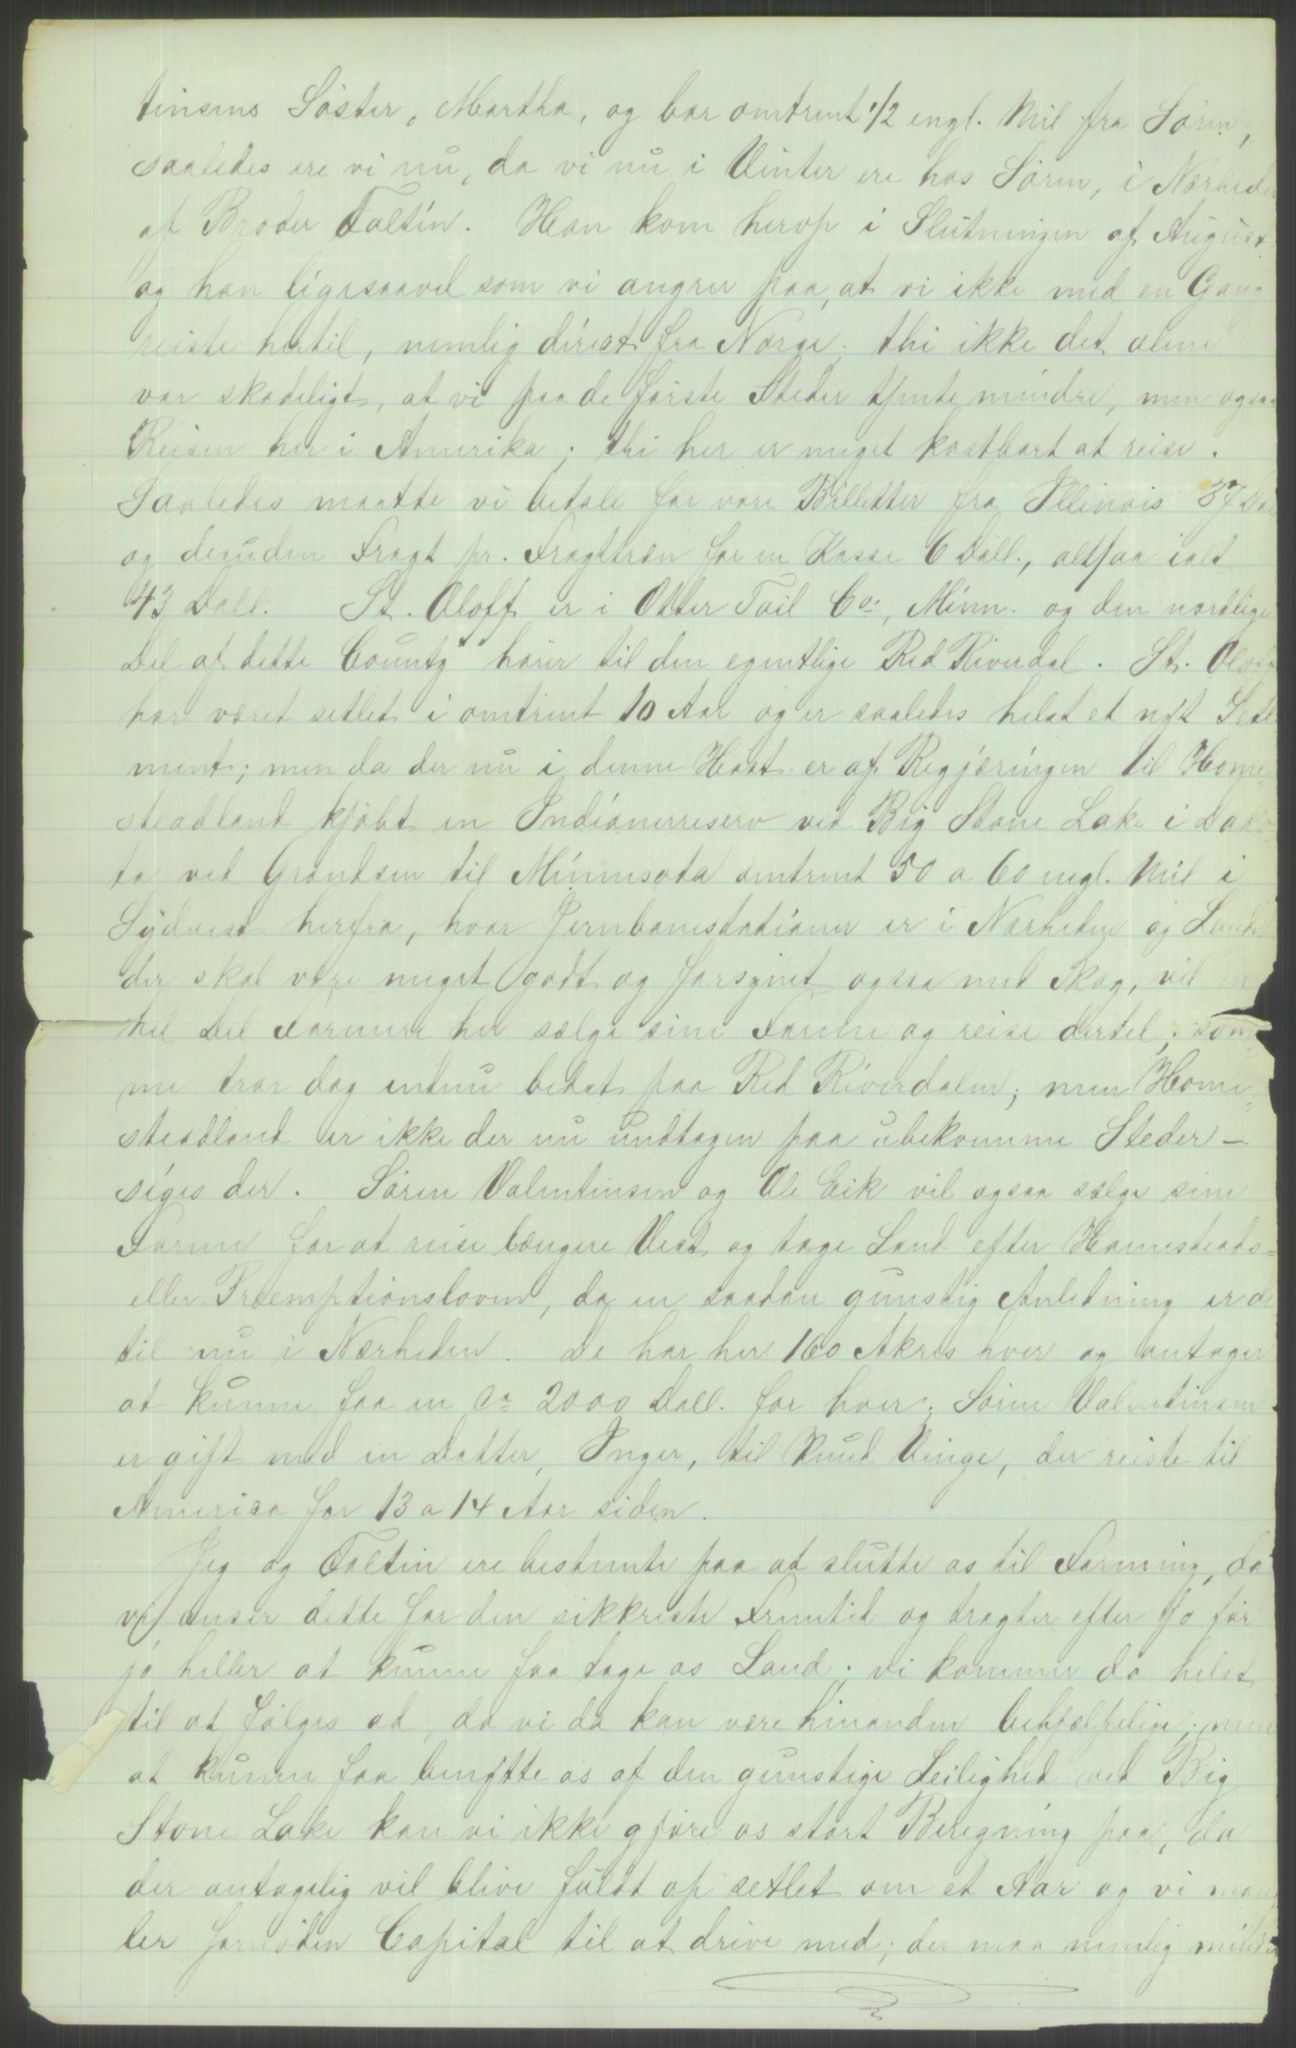 tinsens Søster, Martha, og bor omtrent 1/2 engl. Mil fra Søren,
saaledes ere vi nu, da vi nu i Vinter ere hos Søren, i Nærheden
af Broder Foltin. Han kom herop i Slutningen af August
og han ligesaavel som vi angrer paa, at vi ikke med en Gang
reiste hertil, nemlig direct fra Norge; thi ikke det alene
var skadeligt, at vi paa de første Steder tjente mindre, men ogsaa
Reisen her i Amerika; thi her er meget kostbart at reise.
Saaledes maatte vi betale for vore Billetter fra Illinois 37 Doll
og desuden Fragt pr. Fragttræn for en Kasse 6 Doll., altsaa ialt
43 Doll. St. Oloff er i Otter Tail Co., Minn. og den nordlige
Del af dette County hører til den egentlige Red Riverdal. St. Oloff
har været setlet i omtrent 10 Aar og er saaledes helst et nyt Setle
ment; men da der nu i denne Høst er af Regjæringen til Home-
steadland kjøbt en Indianerreserv ved Big Stone Lake i Dako-
ta ved Grændsen til Minnesota omtrent 50 a 60 engl. Mil i
Sydvest herfra, hvor Jernbanestationer er i Nærheden og Landet
der skal være meget godt og forsynet ogsaa med Skog, vil en
hel Del Farmere her sælge sine Farme og reise dertil; som-
me tror dog endnu bedst paa Red Riverdalen; men Home-
steadland er ikke der nu undtagen paa ubekvemme Steder –
siges der. Søren Valentinsen og Ole Eik vil ogsaa sælge sine
Farme for at reise længere Vest og tage Land efter Homesteads-
eller Præemptionsloven, da en saadan gunstig Anledning er de
til nu i Nærheden. De har her 160 Akres hver og antager
at kunne faa en Ca 2000 Doll. for hver; Søren Valentinsen
er gift med en Datter, Inger, til Knud Vinge, der reiste til
America for 13 a 14 Aar siden.
Jeg og Foltin ere bestemte paa at slutte os til Farming, da
vi anser dette for den sikkreste Fremtid og tragter efter jo før
jo heller at kunne faa tage os Land; vi kommer da helst
til at følges ad, da vi da kan være hinanden behjælpelige; men
at kunne faa benytte os af den gunstige Leilighed ved Big
Stone Lake kan vi ikke gjøre os stort Beregning paa, da
der antagelig vil blive fuldt op setlet om et Aar og vi mang
ler foruden Capital til at drive med; der maa nemlig mindst